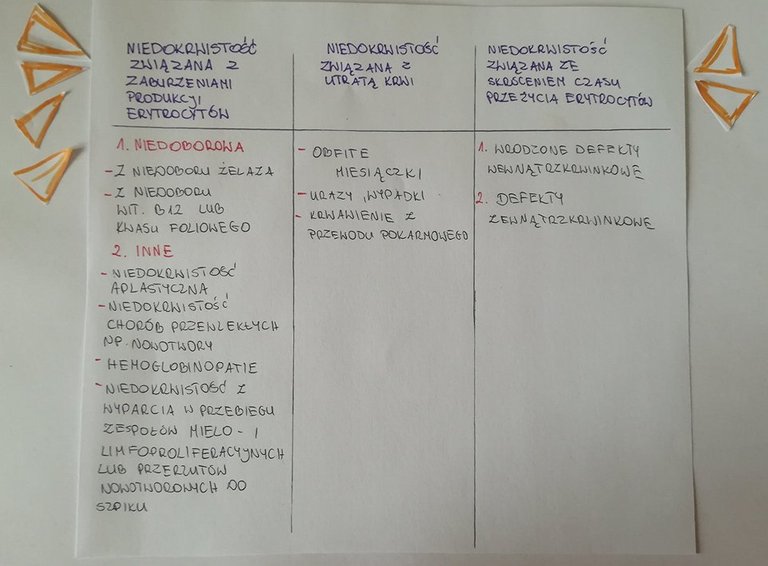 NIEDOKRWISTOŚĆ
ZWIĄZANA Z
ZABURZENIAMI
PRODUKCJI
ERYTROCYTÓW
1. NIEDOBOROWA
- Z NIEDOBORU ŻELAZA
- Z NIEDOBORU
WIT. B12 LUB
KWASU FOLIOWEGO
2. INNE
- NIEDOKRWISTOŚĆ
APLASTYCZNA
- NIEDOKRWISTOŚĆ
CHORÓB PRZEWLEKŁYCH
NP. NOWOTWORY
- HEMOGLOBINOPATIE
- NIEDOKRWISTOŚĆ Z
WYPARCIA W PRZEBIEGU
ZESPOŁÓW MIELO - I
LIMFOPROLIFERACYJNYCH
LUB PRZERZUTÓW
NOWOTWOROWYCH DO
SZPIKU
NIEDOKRWISTOŚĆ
ZWIĄZANA Z
UTRATĄ KRWI
- OBFITE
MIESIĄCZKI
- URAZY, WYPADKI
- KRWAWIENIE Z
PRZEWODU POKARMOWEGO
NIEDOKRWISTOŚĆ
ZWIĄZANA ZE
SKRÓCENIEM CZASU
PRZEŻYCIA ERYTROCYTÓW
1. WRODZONE DEFEKTY
WEWNĄTRZKRWINKOWE
2. DEFEKTY
ZEWNĄTRZKRWINKOWE